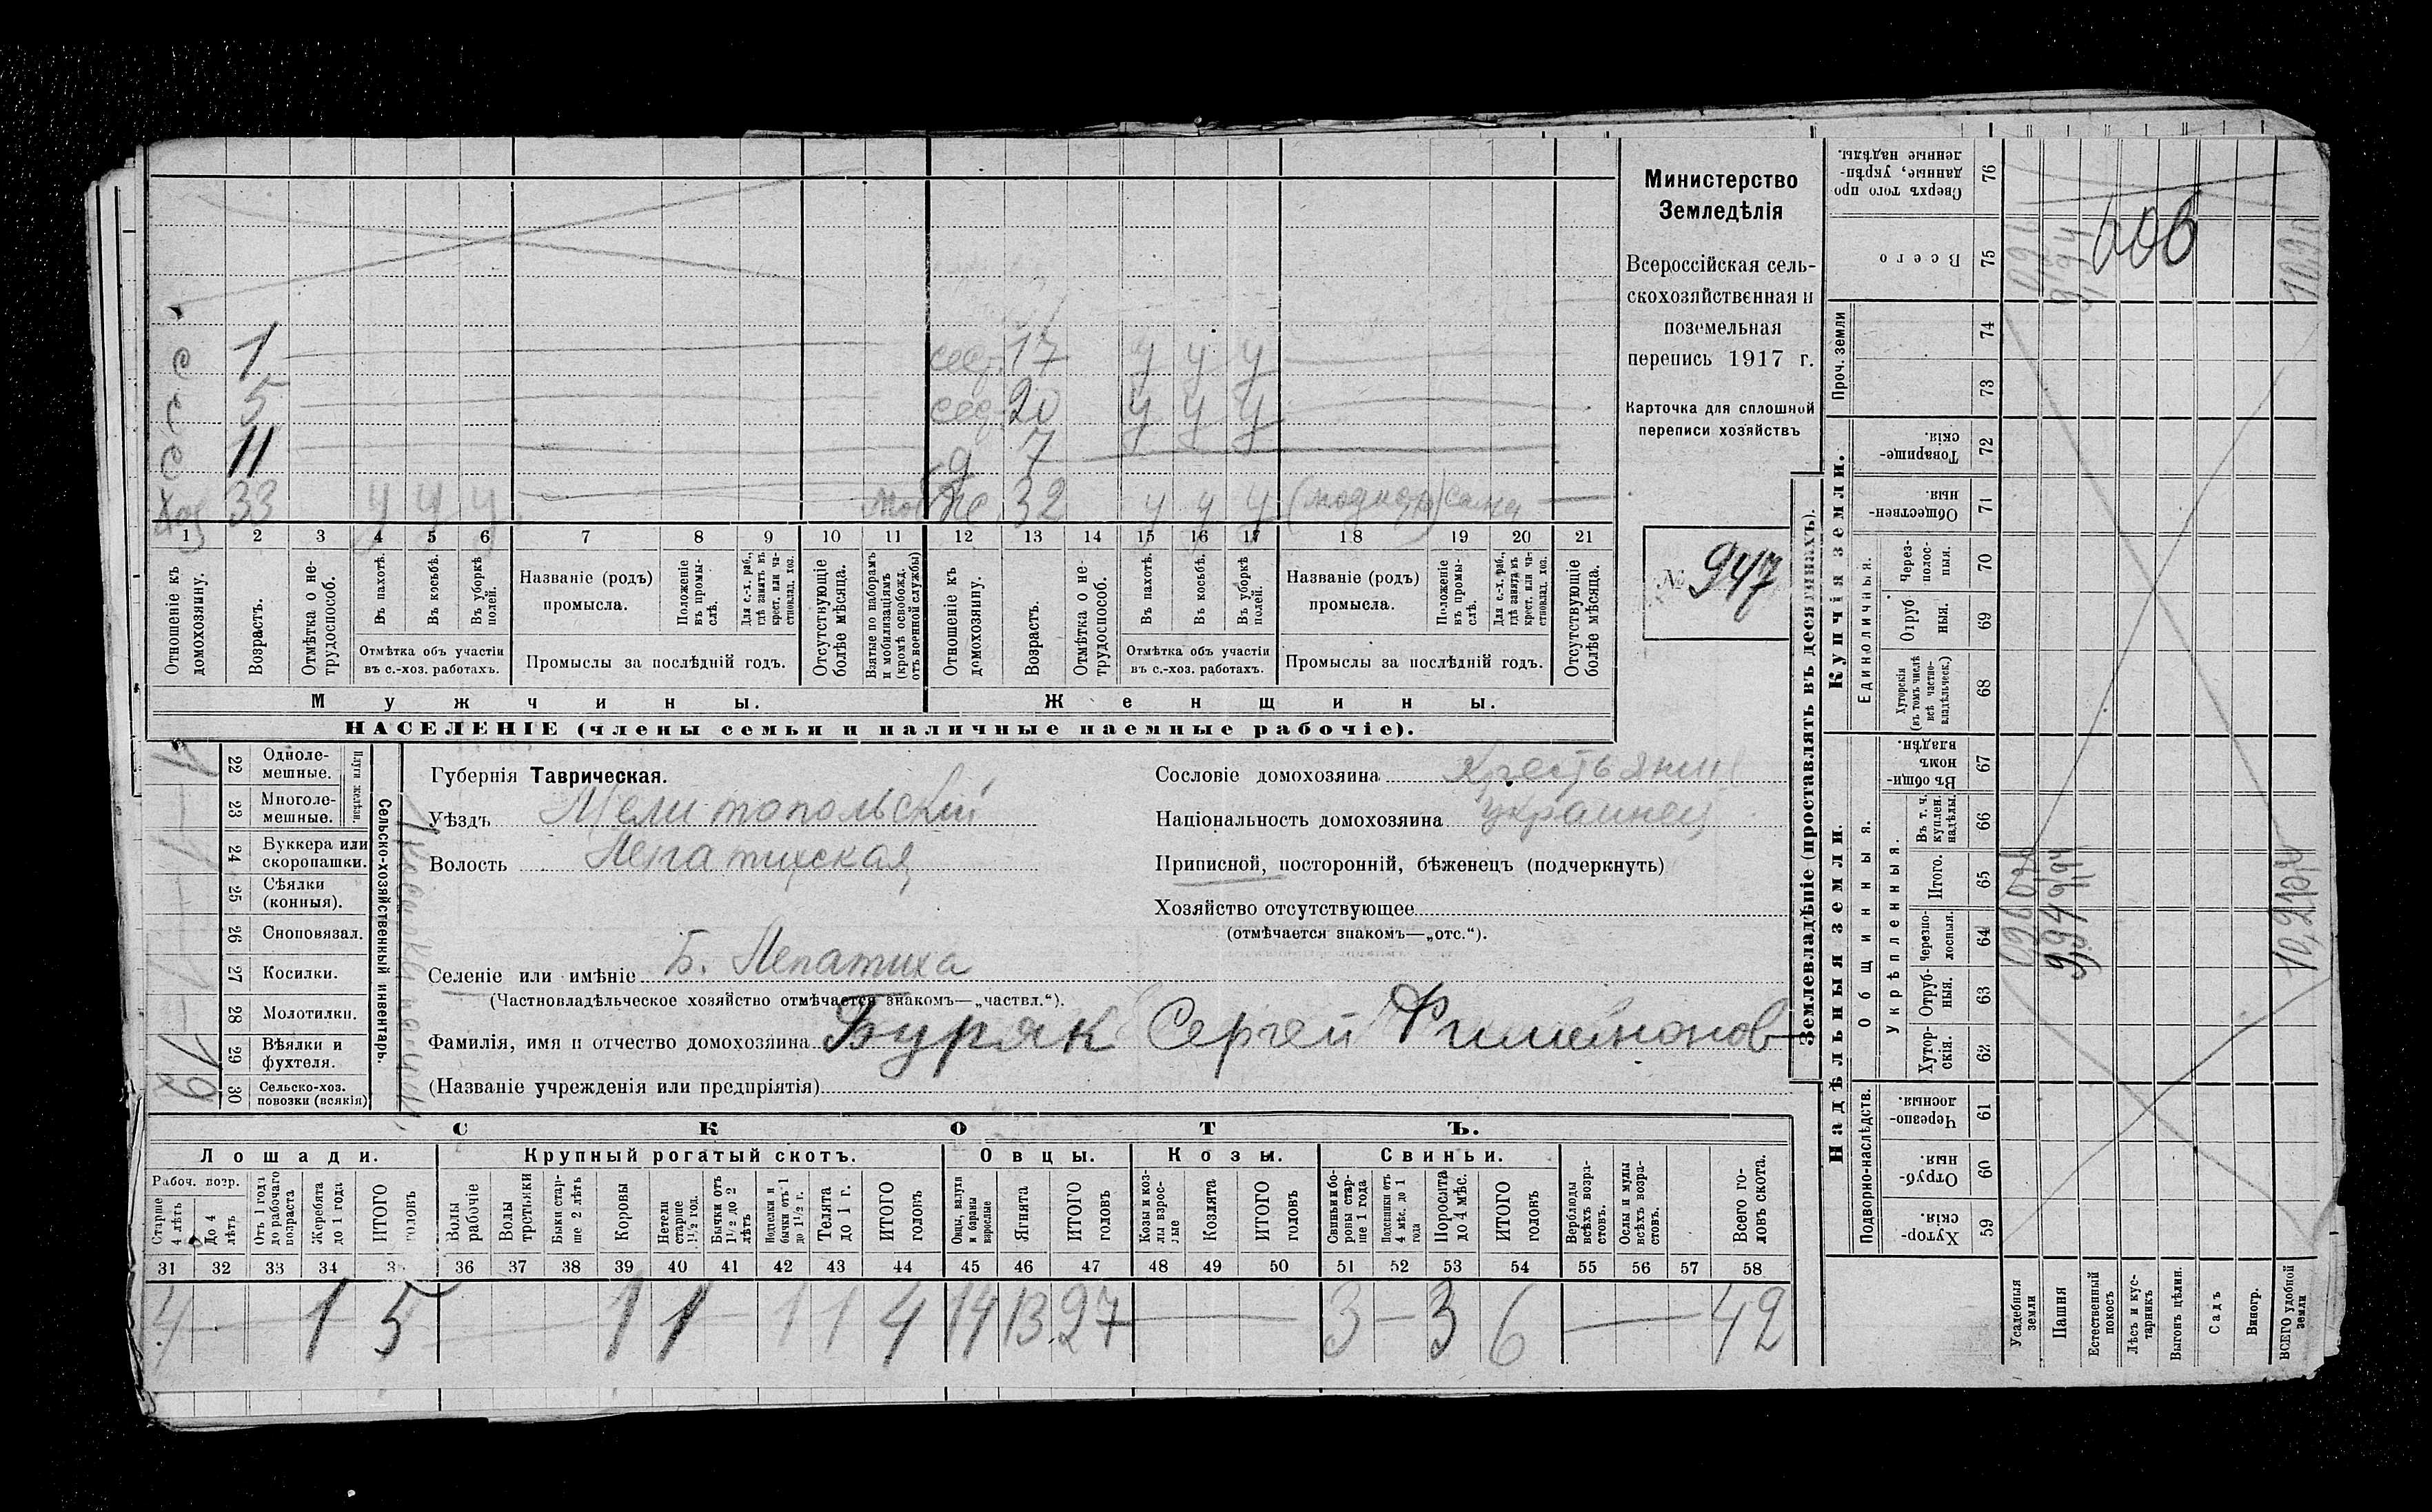 с 1 сес. 17 у у у
с 5 сес. 20 у у у
с 11 д 7
Хоз 33 у у у же 32 у у у сама
1 2 3 4 5 6 7 8 9 10 11 12 13 14 15 16 17 18 19 20 21
Отношеніе къ домохозяину.
Возрастъ.
Отмѣтка о не-трудоспособ.
Въ пахотѣ.
Въ косьбѣ.
Въ уборкѣ полей.
Отмѣтка объ участіи
въ с.-хоз. работахъ.
Названіе (родъ)
промысла.
Положеніе въ промы-слѣ.
Для с.-х. раб., гдѣ занятъ въ крест. или ча-стновлад. хоз.
Промыслы за послѣдній годъ.
Отсутствующіе болѣе мѣсяца.
Взятые по наборамъ и мобилизаціямъ (кромѣ освобожд. отъ военной службы)
Отношеніе къ домохозяину.
Возрастъ.
Отмѣтка о не-трудоспособ.
Въ пахотѣ.
Въ косьбѣ.
Въ уборкѣ полей.
Отмѣтка объ участіи
въ с.-хоз. работахъ.
Названіе (родъ)
промысла.
Положеніе въ промы-слѣ.
Для с.-х. раб., гдѣ занята въ крест. или ча-стновлад. хоз.
Промыслы за послѣдній годъ.
Отсутствующіе болѣе мѣсяца.
Мужчины.
Женщины.
НАСЕЛЕНІЕ (члены семьи и наличные наемные рабочіе).
Министерство
Земледѣлія
Всероссійская сель-
скохозяйственная и
поземельная
перепись 1917 г.
Карточка для сплошной
переписи хозяйствъ
№ 947
22 Одноле-мешные.
23 Многоле-мешные.
Плуги желѣзн.
24 Буккера или скоропашки.
25 Сѣялки (конныя).
26 Сноповязал.
27 Косилки.
28 Молотилки.
29 Вѣялки и фухтеля.
30 Сельско-хоз. повозки (всякія)
Сельско-хозяйственный инвентарь.
Губернія Таврическая.
Уѣздъ Мелитопольскій
Волость Лепатихская
Селеніе или имѣніе Б. Лепатиха
(Частновладѣльческое хозяйство отмѣчается знакомъ—„частвл.“).
Фамилія, имя и отчество домохозяина Буряк Сергей Филимонов
(Названіе учрежденія или предпріятія)
Сословіе домохозяина Крестьянин
Національность домохозяина украинец
Приписной, посторонній, бѣженецъ (подчеркнуть)
Хозяйство отсутствующее
(отмѣчается знакомъ—„отс.“).
СКОТЪ.
Лошади. Крупный рогатый скотъ. Овцы. Козы. Свиньи.
Рабоч. возр.
Старше 4 лѣтъ
До 4 лѣтъ
Отъ 1 года до рабочаго возраста
Жеребята до 1 года
ИТОГО головъ
Волы рабочіе
Волы третьяки
Быки стар-ше 2 лѣтъ
Коровы
Нетели старше 1½ год.
Бычки отъ 1½ до 2 лѣтъ
Подтелки и бычки отъ 1 до 1½ г.
Телята до 1 г.
ИТОГО головъ
Овцы, валухи и бараны взрослые
Ягнята
ИТОГО головъ
Козы и коз-лы взрос-лые
Козлята
ИТОГО головъ
Свиньи и бо-ровы стар-ше 1 года
Подсвинки отъ 4 мѣс. до 1 года
Поросята до 4 мѣс.
ИТОГО головъ
Верблюды всѣхъ возра-стовъ.
Ослы и мулы всѣхъ возра-стовъ.
Всего го-ловъ скота.
31 32 33 34 35 36 37 38 39 40 41 42 43 44 45 46 47 48 49 50 51 52 53 54 55 56 57 58
4 — 1 5 — 1 1 — 1 1 4 14 13 27 — 3 — 3 6 — 42
Землевладѣніе (проставлять въ десятинахъ).
Надѣльныя земли.
Купчія земли.
Подворно-наслѣдств.
Общинныя.
Укрѣпленныя.
Единоличныя.
Проч. земли
Хутор-скія. 59
Отруб-ныя. 60
Черезпо-лосныя. 61
Хутор-скія. 62
Отруб-ныя. 63
Черезпо-лосныя. 64
Итого. 65
Въ т. ч. куплен. надѣлы. 66
Въ общи-номъ владѣн. 67
Хуторскія (въ томъ числѣ всѣ частно-владѣльческ.) 68
Отруб-ныя. 69
Через-полос-ныя. 70
Обществен-ныя. 71
Товарище-скія. 72
73
74
Всего 75
Сверхъ того про-данные, укрѣп-ленные надѣлы. 76
Усадебныя земли
Пашня 994 994 994
Естественный покосъ
Лѣсъ и кус-тарникъ
Выгонъ цѣлин.
Садъ
Виногр.
ВСЕГО удобной земли